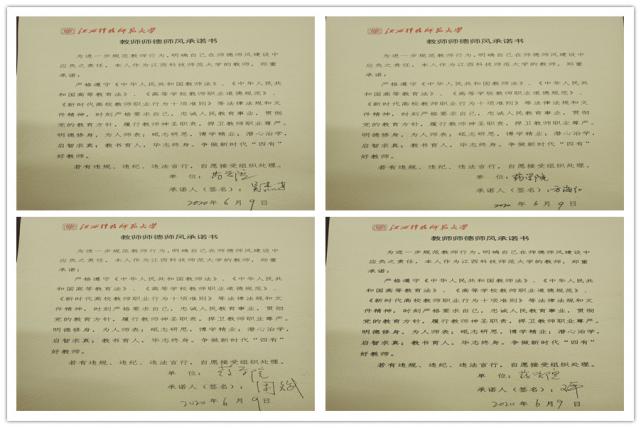 江西科技师范大学
教师师德师风承诺书
为进一步规范教师行为，明确自己在师德师风建设中
应负之责任，本人作为江西科技师范大学的教师，郑重
承诺：
严格遵守《中华人民共和国教师法》、《中华人民共
和国高等教育法》、《高等学校教师职业道德规范》、
《新时代高校教师职业行为十项准则》等法律法规和文
件精神，时刻严格要求自己，忠诚人民教育事业，贯彻
党的教育方针，履行教师神圣职责，捍卫教师职业尊严。
明德修身，为人师表；砥志研思，博学精业；潜心治学，
启智求真；教书育人，毕志终身，争做新时代“四有”
好教师。
若有违规、违纪、违法言行，自愿接受组织处理。
单 位：药学院
承诺人（签名）：
2020年6月9日
江西科技师范大学
教师师德师风承诺书
为进一步规范教师行为，明确自己在师德师风建设中
应负之责任，本人作为江西科技师范大学的教师，郑重
承诺：
严格遵守《中华人民共和国教师法》、《中华人民共
和国高等教育法》、《高等学校教师职业道德规范》、
《新时代高校教师职业行为十项准则》等法律法规和文
件精神，时刻严格要求自己，忠诚人民教育事业，贯彻
党的教育方针，履行教师神圣职责，捍卫教师职业尊严。
明德修身，为人师表；砥志研思，博学精业；潜心治学，
启智求真；教书育人，毕志终身，争做新时代“四有”
好教师。
若有违规、违纪、违法言行，自愿接受组织处理。
单 位：药学院
承诺人（签名）：
2020年6月9日
江西科技师范大学
教师师德师风承诺书
为进一步规范教师行为，明确自己在师德师风建设中
应负之责任，本人作为江西科技师范大学的教师，郑重
承诺：
严格遵守《中华人民共和国教师法》、《中华人民共
和国高等教育法》、《高等学校教师职业道德规范》、
《新时代高校教师职业行为十项准则》等法律法规和文
件精神，时刻严格要求自己，忠诚人民教育事业，贯彻
党的教育方针，履行教师神圣职责，捍卫教师职业尊严。
明德修身，为人师表；砥志研思，博学精业；潜心治学，
启智求真；教书育人，毕志终身，争做新时代“四有”
好教师。
若有违规、违纪、违法言行，自愿接受组织处理。
单 位：药学院
承诺人（签名）：
2020年6月9日
江西科技师范大学
教师师德师风承诺书
为进一步规范教师行为，明确自己在师德师风建设中
应负之责任，本人作为江西科技师范大学的教师，郑重
承诺：
严格遵守《中华人民共和国教师法》、《中华人民共
和国高等教育法》、《高等学校教师职业道德规范》、
《新时代高校教师职业行为十项准则》等法律法规和文
件精神，时刻严格要求自己，忠诚人民教育事业，贯彻
党的教育方针，履行教师神圣职责，捍卫教师职业尊严。
明德修身，为人师表；砥志研思，博学精业；潜心治学，
启智求真；教书育人，毕志终身，争做新时代“四有”
好教师。
若有违规、违纪、违法言行，自愿接受组织处理。
单 位：药学院
承诺人（签名）：
2020年6月9日